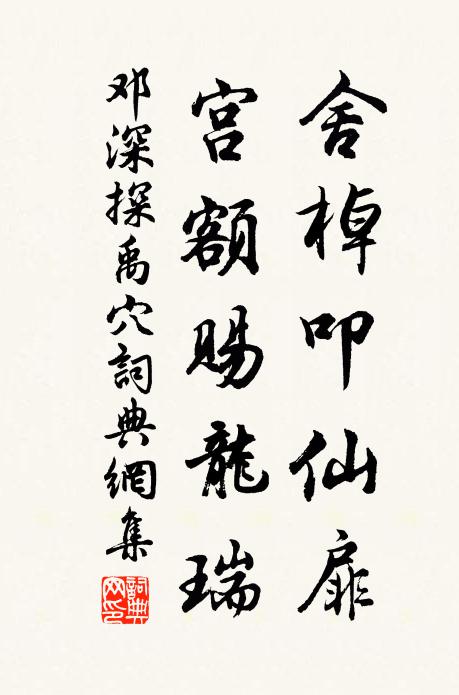 舍棹叩仙扉
宫额賜龍瑞
邓深探禹穴詞典網集
詞典網印